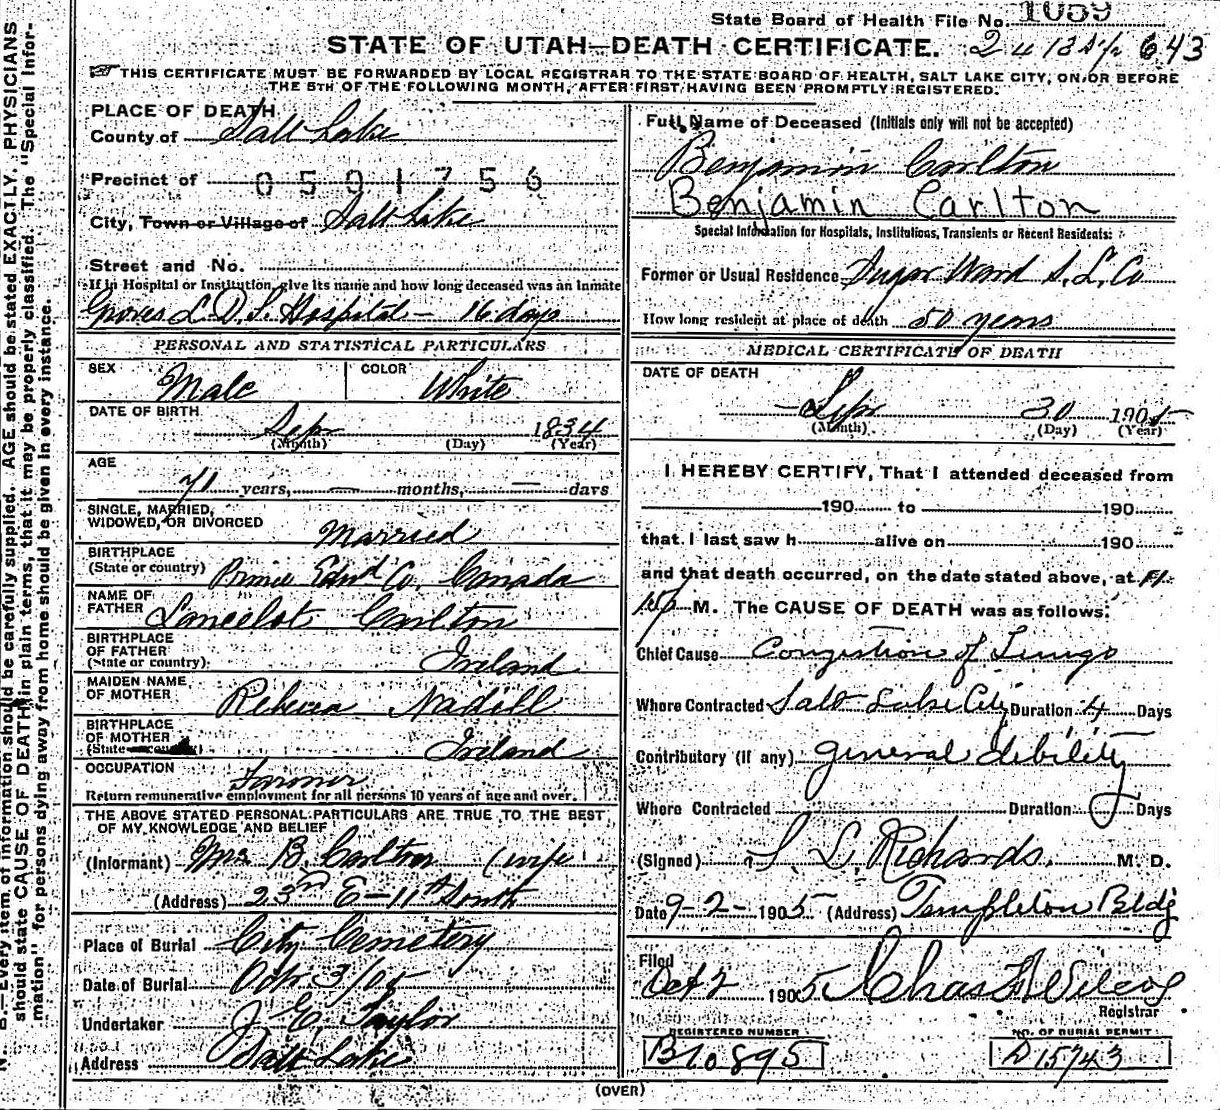 State Board of Health File No. 1059
STATE OF UTAH—DEATH CERTIFICATE.
THIS CERTIFICATE MUST BE FORWARDED BY LOCAL REGISTRAR TO THE STATE BOARD OF HEALTH, SALT LAKE CITY, ON OR BEFORE
THE 5TH OF THE FOLLOWING MONTH, AFTER FIRST HAVING BEEN PROMPTLY REGISTERED.
PLACE OF DEATH
County of Salt Lake
Precinct of 0591756
City, Town or Village of Salt Lake
Street and No.
If in Hospital or Institution, give its name and how long deceased was an inmate
Groves L. D. S. Hospital - 16 days
PERSONAL AND STATISTICAL PARTICULARS
SEX Male COLOR White
DATE OF BIRTH Sep 1834
(Month) (Day) (Year)
AGE
71 years, — months, — days
SINGLE, MARRIED,
WIDOWED, OR DIVORCED Married
BIRTHPLACE
(State or country) Prince Edwd Co. Canada
NAME OF
FATHER Lancelot Carlton
BIRTHPLACE
OF FATHER
(State or country) Ireland
MAIDEN NAME
OF MOTHER Rebecca Nadill
BIRTHPLACE
OF MOTHER
(State or country) Ireland
OCCUPATION Farmer
Return remunerative employment for all persons 10 years of age and over.
THE ABOVE STATED PERSONAL PARTICULARS ARE TRUE TO THE BEST
OF MY KNOWLEDGE AND BELIEF
(Informant) Mrs B. Carlton (wife
(Address) 23rd E - 11th South
Place of Burial City Cemetery
Date of Burial Oct 3/05
Undertaker J. E. Taylor
Address Salt Lake
Full Name of Deceased (Initials only will not be accepted)
Benjamin Carlton
Benjamin Carlton
Special Information for Hospitals, Institutions, Transients or Recent Residents:
Former or Usual Residence Sugar Ward S. L. Co
How long resident at place of death 50 years
MEDICAL CERTIFICATE OF DEATH
DATE OF DEATH
Sep 30 1905
(Month) (Day) (Year)
I HEREBY CERTIFY, That I attended deceased from
190 to 190
that I last saw h alive on 190
and that death occurred, on the date stated above, at
M. The CAUSE OF DEATH was as follows:
Chief Cause Congestion of Lungs
Where Contracted Salt Lake City Duration 4 Days
Contributory (if any) general debility
Where Contracted Duration Days
(Signed) S. L. Richards. M. D.
Date 9-2-1905 (Address) Templeton Bldg
Filed
Oct 2 1905 Chas Wilcox
Registrar
REGISTERED NUMBER
B10895
NO. OF BURIAL PERMIT
D15743
(OVER)
N. B.—Every item of information should be carefully supplied. AGE should be stated EXACTLY. PHYSICIANS
should state CAUSE OF DEATH in plain terms, that it may be properly classified. The "Special Infor-
mation" for persons dying away from home should be given in every instance.